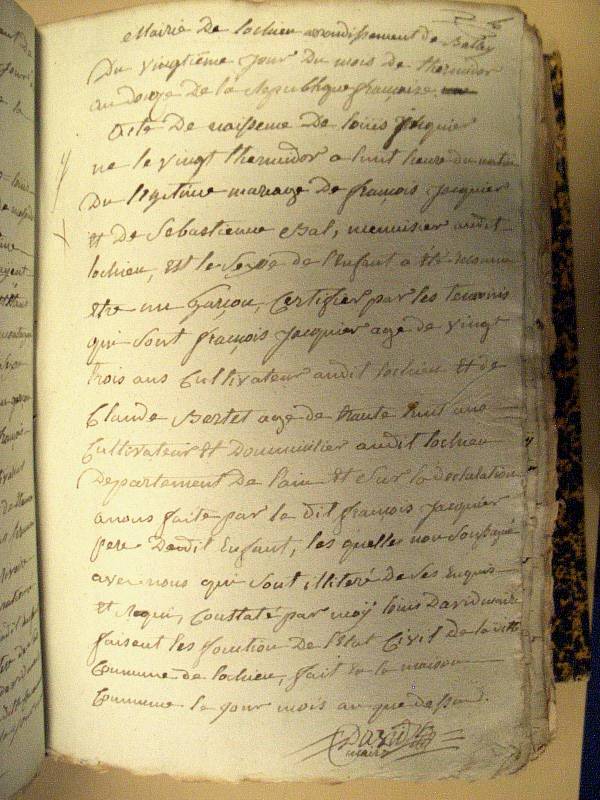 Mairie De lochieu arrondissement de Belley
Du vingtième jour Du mois de thermidor
an douze De la Republique française
Acte De naissance De louis Jaquier
né le vingt thermidor a huit heure du matin
Du légitime mariage De françois Jacquier
et De Sébastienne Bal, menuisier audit
lochieu, est le sexe de l'Enfant a été reconnu
être un garçon, Certifier par les temoins
qui sont françois Jacquier age de vingt
trois ans Cultivateur audit lochieu Et de
Claude Bertet age de trente huit ans
Cultivateur Et Dommicilier audit lochieu
Departement De l'ain Et sur la declalation
anous faite par le dit françois Jacquier
pere Dudit Enfant, les quelles non Soussigné
avec nous qui sont illiteré De ses Enquis
Et Requi, Constaté par moy louis David maire
faisent les fonction De l'Etat Civil De la ditte
Commune de lochieu, fait En la maison
Commune le jour mois an que dessus.
David
maire